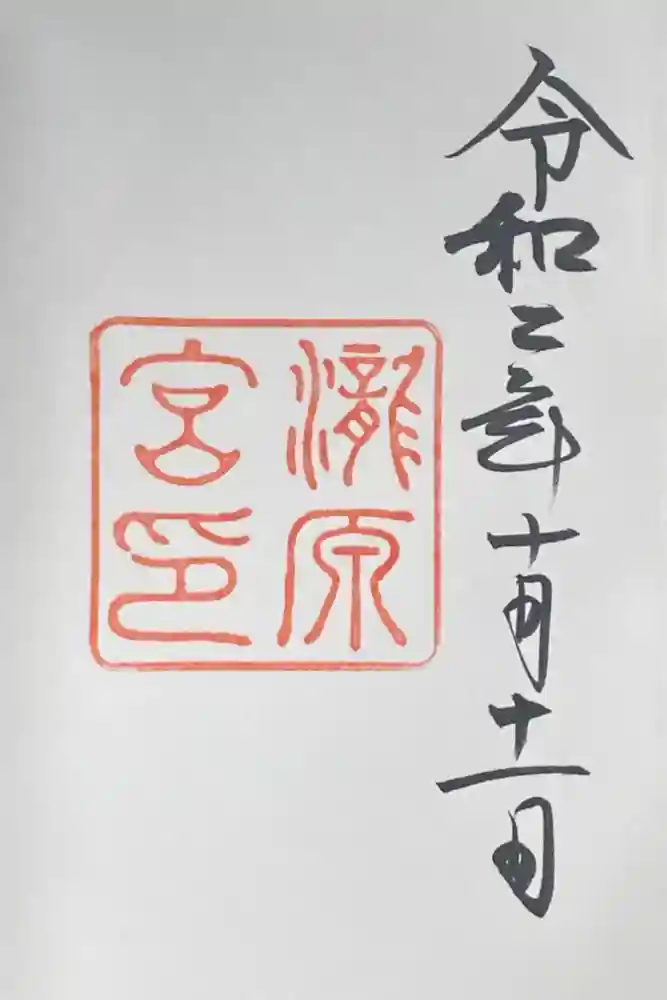 令和二年十月十一日
瀧原
宮印